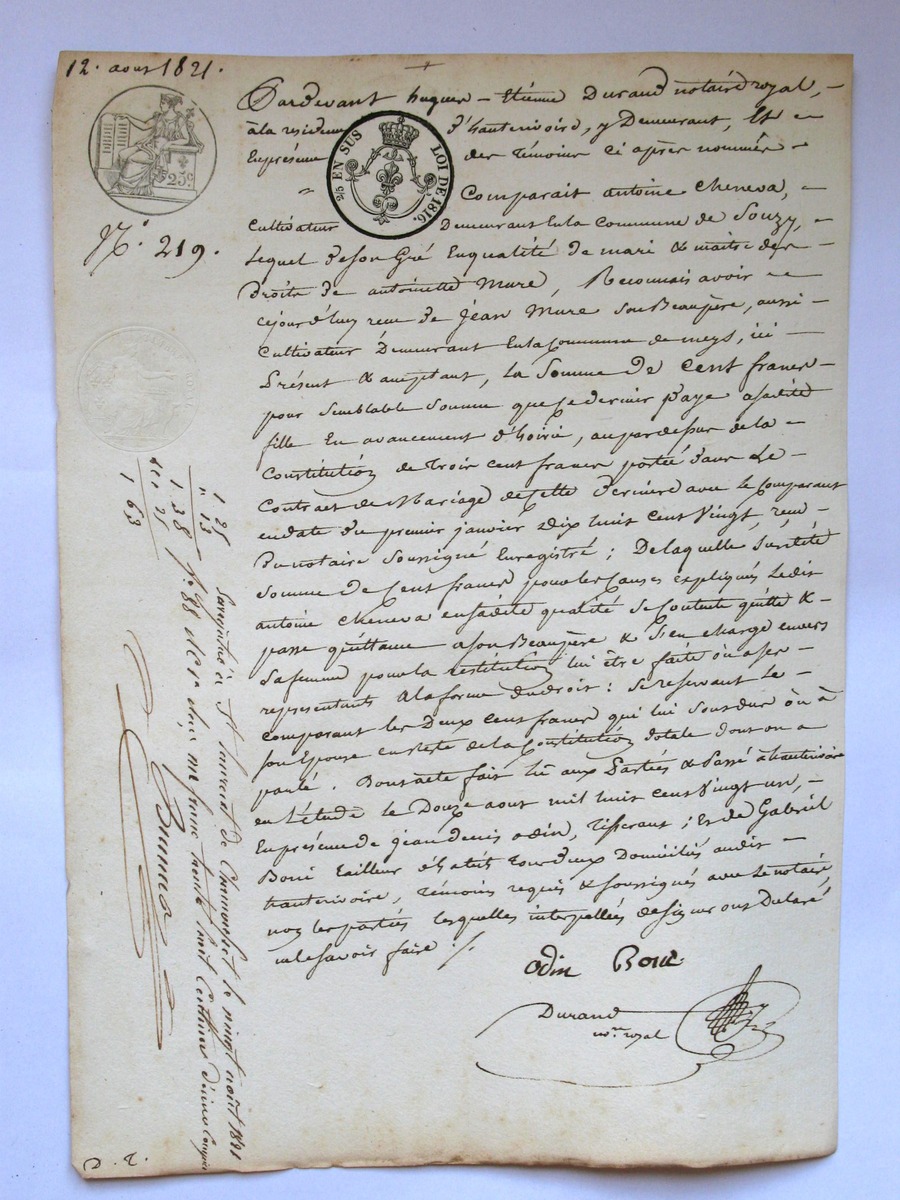 12. aout 1821.
25c
N.° 219.
2/5 EN SUS LOI DE 1816.
Pardevant hugues - Etienne Durand notaire royal, -
à la residence d'hauterivoire, y Demeurant, Et en
En présence des témoins ci après nommés -
Comparait antoine Cheneva, -
Cultivateur Demeurant En la Commune de Souzy, -
Lequel de son Gré En qualité de mari & maitre des -
Droits de antoinette Mure, Reconnais avoir
cejourd'huy reçu de Jean Mure Son Beaupère, aussi
Cultivateur Demeurant En la Commune de meys, ici -
Présent & acceptant, La Somme de Cent francs -
pour Semblable Somme que ce dernier paye a sadite
fille En avancement d'hoirie, au par dessus de la -
Constitution de Trois Cent francs portée Dans Le -
Contract de Mariage de Cette derniere avec le Comparant
en date du premier janvier Dix huit Cent Vingt, reçu
Du notaire Soussigné Enregistré ; De laquelle Susdite
Somme de Cent francs pour les Causes expliquées Ledit
antoine Cheneva en sadite qualité Se Contente quitte &
passe quittance a son Beaupère & S'en charge envers
Sa femme pour la restitution lui être faite ou a ses
representants a la forme du droit : Se reservant Le
Comparant les Deux Cent francs qui lui Sont dus où à
son Epouse en reste de la Constitution dotale dont on a
parlé. Dont acte fait lu aux Parties & Passé à hauterivoire
en L'étude le Douze aout mil huit Cent Vingt un, -
En présence de jean denis odin, Tisserant ; Et de Gabriel
Boni Tailleur d'habits Tous deux Domiciliés audit -
hauterivoire, Témoins requis & soussignés avec le notaire
non les parties lesquelles interpellées de signer ont Déclaré
ne le savoir faire ./.
Odin Boni
Durand
no.re royal
1 25
" 13
1 38
25
1 63
Enregistré à St Laurent de Chamousset le vingt août 1821
f.° 88 reçu un franc trente huit Centimes décime Compris
D. T.